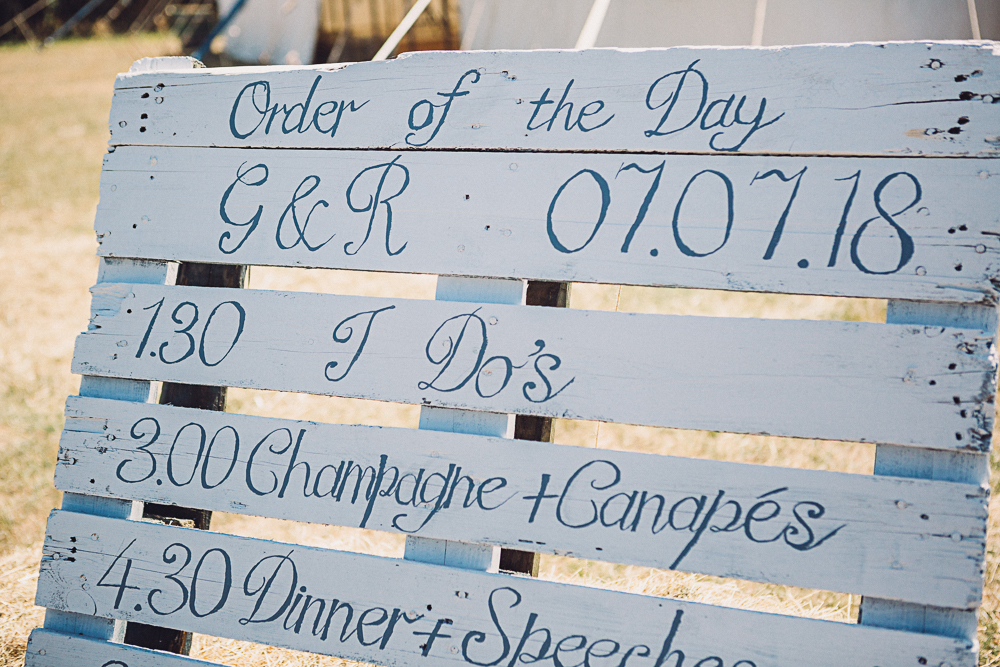 Order of the Day
G & R 07.07.18
1.30 I Do's
3.00 Champagne + Canapés
4.30 Dinner + Speeches